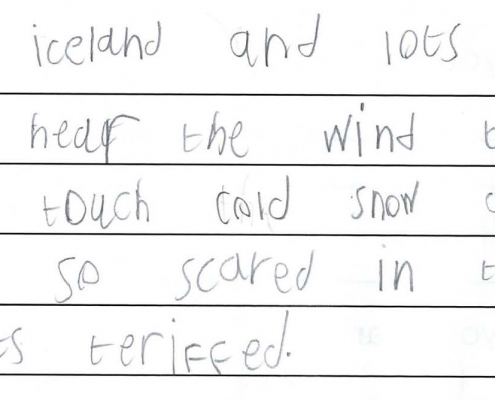 iceland and lots
hear the wind t
touch cold snow
so scared in t
ts teriffed.